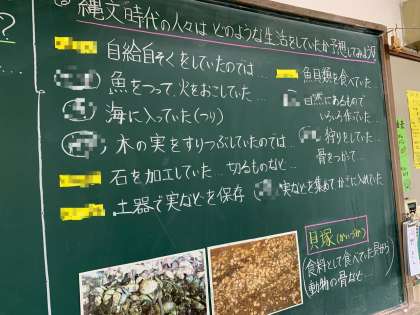 縄文時代の人々は どのような生活をしていたか予想してみよう
?
自給自そくをしていたのでは…
魚をつって火をおこしていた
海に入っていた(つり)
木の実をすりつぶしていたのでは…
石を加工していた…切るものなど…
土器で実などを保存
魚貝類を食べていた…
自然にあるもので
いろいろ作っていた…
狩りをしていた…
骨をつかって…
実などを集めてかごに入れていた
貝塚(かいづか)
(食料として食べていた貝がら
動物の骨など…)